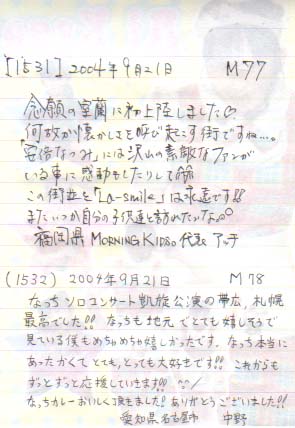 [1531] 2004年9月21日 M77
念願の室蘭に初上陸しました♡
何故か懐かしさを呼び起こす街ですね…。
「安倍なつみ」には沢山の素敵なファンが
いる事に感動をしたりして
この街並と「La-smile」は永遠です!!
またいつか自分の子供達と訪れたいなぁ。
福岡県 MORNING KIDS。代表 アッチ
(1532) 2004年9月21日 M78
なっち ソロコンサート凱旋公演の帯広、札幌
最高でした!! なっちも地元でとても嬉しそうで
見ている僕もめちゃめちゃ嬉しかったです。なっち本当に
あったかくてとても、とっても大好きです!! これからも
ずっとずっと応援していきます!! ^^/
なっちカレーおいしく頂きました! ありがとうございました!!
愛知県名古屋市 中野